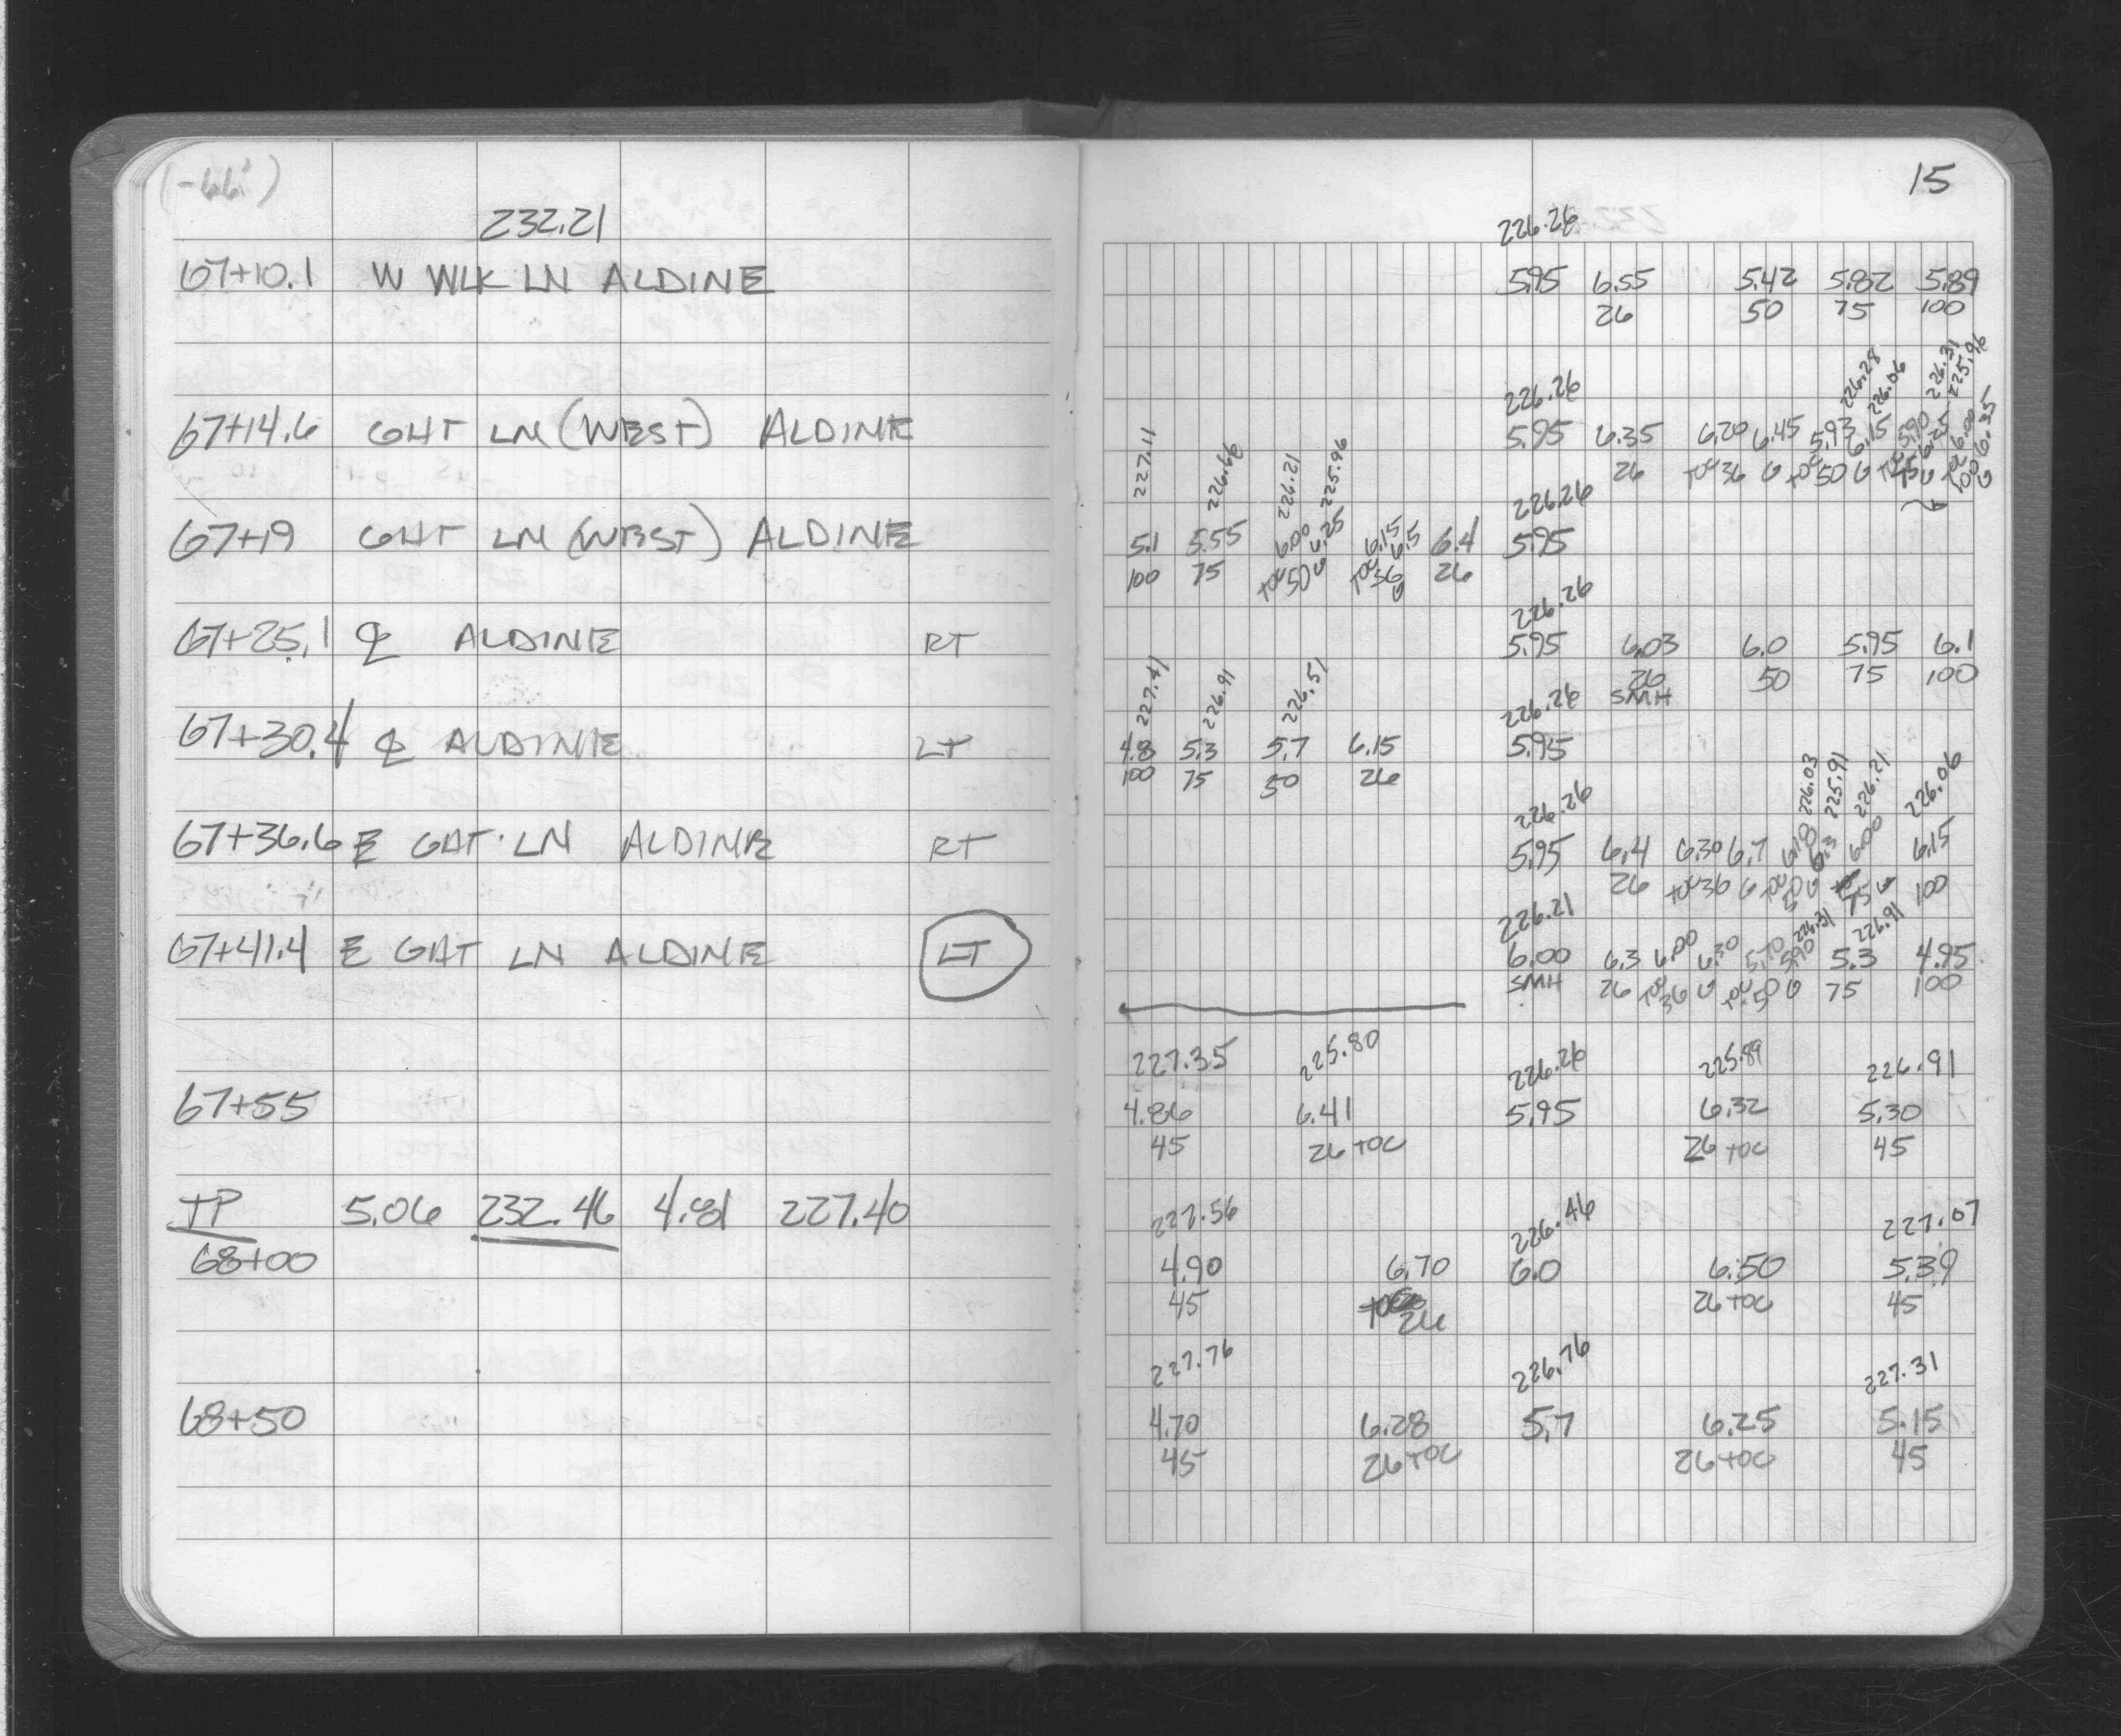 (-66')
232.21
67+10.1 W WLK LN ALDINE
67+14.6 GUT LN (WEST) ALDINE
67+19 GUT LN (WEST) ALDINE
67+25.1 ℄ ALDINE RT
67+30.4 ℄ ALDINE LT
67+36.6 E GUT. LN ALDINE RT
67+41.4 E GUT LN ALDINE LT
67+55
TP 5.06 232.46 4.81 227.40
68+00
68+50
15
226.26
5.95 6.55 5.42 5.82 5.89
26 50 75 100
226.26 226.28 226.06 226.31 225.96
5.95 6.35 6.20 6.45 5.93 6.15 5.90 6.25 6.00 6.35
26 TOC 36 G TOC 50 G TOC 75 G TOC 100 G
227.11 226.66 226.21 225.96 226.26
5.1 5.55 6.00 6.25 6.15 6.5 6.4 5.95
100 75 TOC 50 G TOC 36 G 26
226.26
5.95 6.03 6.0 5.95 6.1
26 50 75 100
SMH
227.41 226.91 226.51 226.26
4.8 5.3 5.7 6.15 5.95
100 75 50 26
226.26 226.03 225.91 226.21 226.06
5.95 6.4 6.30 6.7 6.18 6.3 6.00 6.15
26 TOC 36 G TOC 50 G 75 G 100
226.21 226.31 226.91
6.00 6.3 6.00 6.30 5.70 5.90 5.3 4.95
SMH 26 TOC 36 G TOC 50 G 75 100
227.35 225.80 226.26 225.89 226.91
4.86 6.41 5.95 6.32 5.30
45 26 TOC 26 TOC 45
227.56 226.46 227.07
4.90 6.70 6.0 6.50 5.39
45 26 26 TOC 45
227.76 226.76 227.31
4.70 6.28 5.7 6.25 5.15
45 26 TOC 26 TOC 45